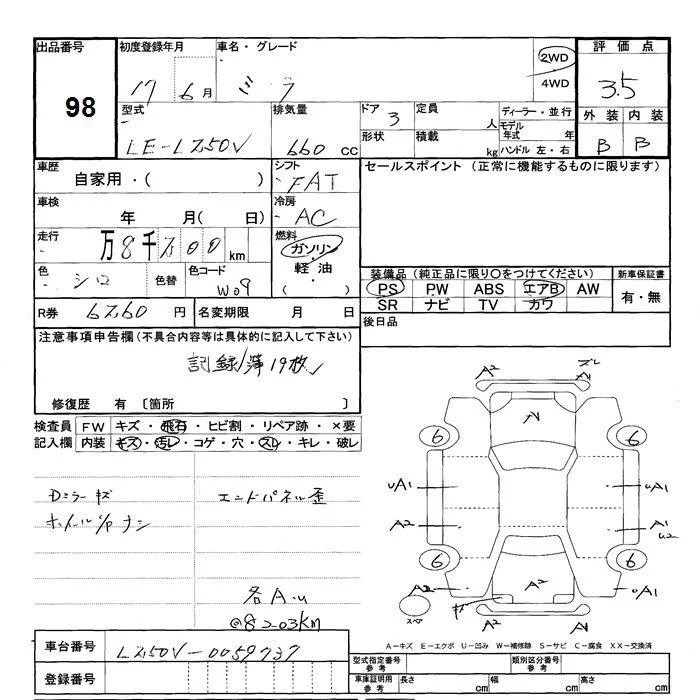 出品番号 初度登録年月 車名・グレード 2WD 評価点
98 17 6月 ミラ 4WD 3.5
型式 排気量 ドア 3 定員 人 ディーラー・並行 外装 内装
形状 積載 kg モデル年式 年
LE-L250V 660 cc ハンドル 左・右 B B
車歴 シフト セールスポイント (正常に機能するものに限ります)
自家用・( ) FAT
車検 冷房
年 月( 日) AC
走行 燃料
万8千200km ガソリン
色 シロ 色替 色コード W09 軽油 装備品(純正品に限り○をつけてください) 新車保証書
( ) PS PW ABS エアB AW 有・無
R券 6760円 名変期限 月 日 SR ナビ TV カワ
注意事項申告欄(不具合内容等は具体的に記入して下さい) 後日品
記録簿19枚
修復歴 有 〔箇所 〕
検査員 FW キズ・飛石・ヒビ割・リペア跡・×要
記入欄 内装 キズ・汚レ・コゲ・穴・スレ・キレ・破レ
Dミラーキズ エンドパネル歪
各A.u
@8203KM
A2 ズレ
A1
A
6 6
uA1 uA1
A2 A2 A1
u2
6 6
A2 A2 uA1
A-キズ E-エクボ U-凹み W-補修跡 S-サビ C-腐食 XX-交換済
車台番号 L250V-0059737 型式指定番号 参考 類別区分番号 参考
登録番号 車庫証明用 参考 長さ cm 幅 cm 高さ cm